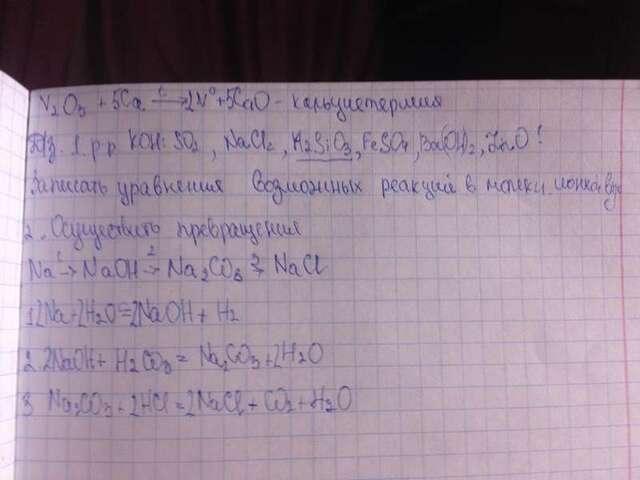 V2O5 + 5Ca t→ 2V⁰ + 5CaO - кальциетермия
Дз. 1. р-р KOH: SO2, NaCl2, H2SiO3, FeSO4, Ba(OH)2, ZnO!
Записать уравнения возможных реакций в молек. ионном виде
2. Осуществить превращения
Na 1→ NaOH 2→ Na2CO3 3→ NaCl
1. 2Na + 2H2O = 2NaOH + H2
2. 2NaOH + H2CO3 = Na2CO3 + 2H2O
3 Na2CO3 + 2HCl = 2NaCl + CO2 + H2O